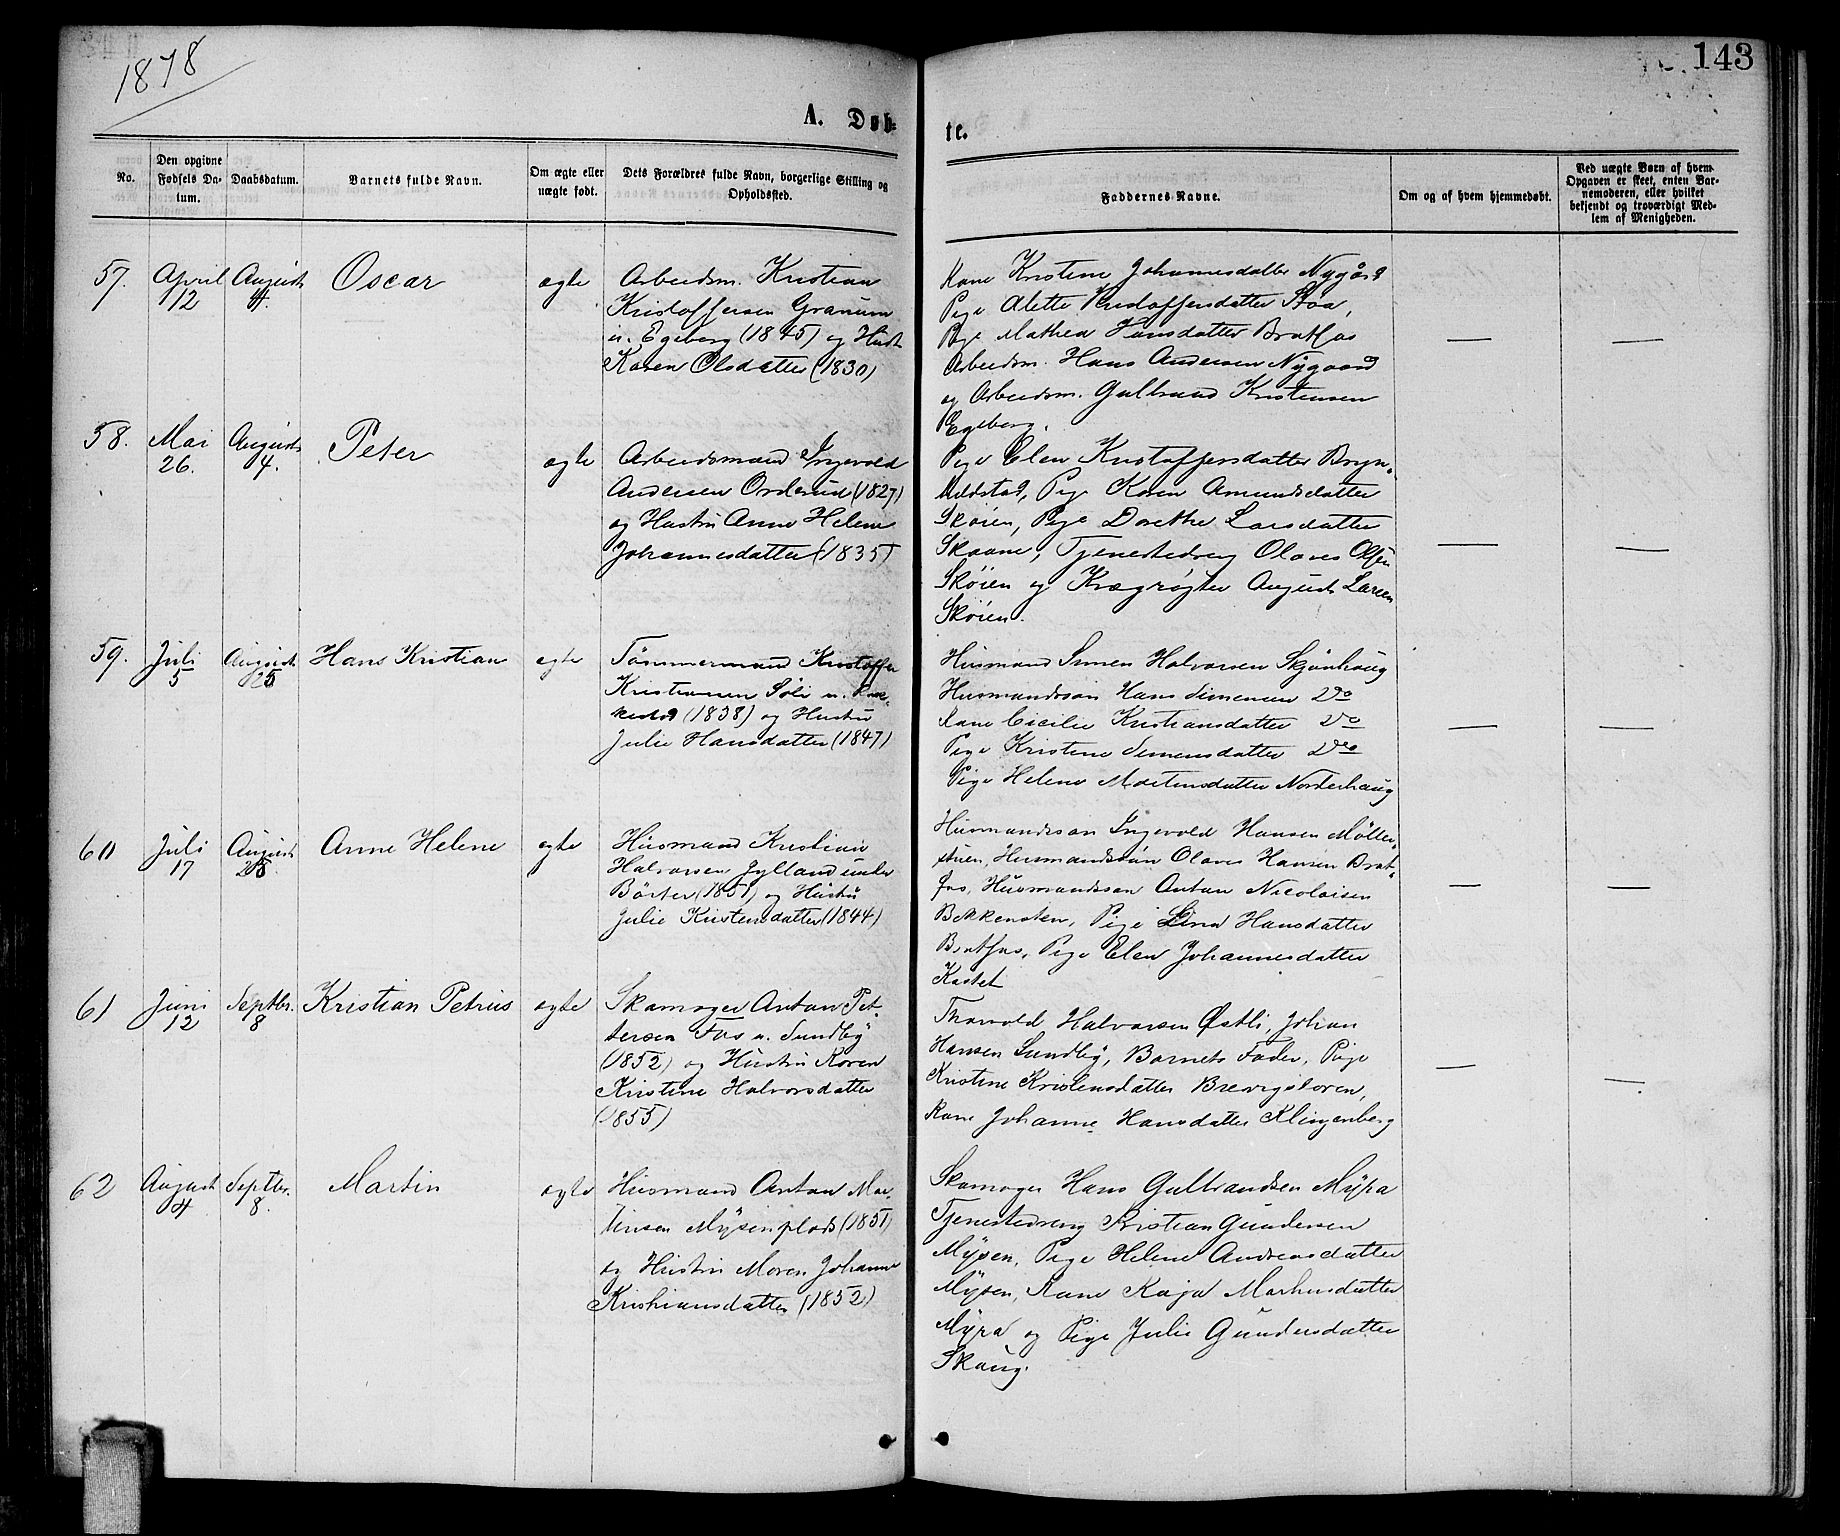 1878
143
A. Døb-
te.
No.
Den opgivne Fødsels Da-tum.
Daabsdatum.
Barnets fulde Navn.
Om ægte eller uægte født.
Dets Forældres fulde Navn, borgerlige Stilling og Opholdssted.
Faddernes Navne.
Om og af hvem hjemmedøbt.
Ved uægte Børn af hvem Opgaven er skeet, enten Bar-nemoderen, eller hvilket bekjendt og troværdigt Med-lem af Menigheden.
57. April 12 August 4 Oscar ægte
Arbeidsm. Kristian
Kristoffersen Granum
u. Egeberg (1845) og Hust.
Karen Olsdatter (1830)
Kane Kristine Johannesdatter Nygård
Pige Alette Kristoffersdatter Stoa,
Pige Mathea Hansdatter Bratfos
Arbeidsm. Hans Andersen Nygaard
og Arbeidsm. Gulbrand Kristensen
Egeberg.
58. Mai 26. August 4. Peter ægte
Arbeidsmand Ingevold
Andersen Orderud (1827)
og Hustru Anne Helene
Johannesdatter (1835)
Pige Elen Kristoffersdatter Bryn-
mildstad, Pige Karen Amundsdatter
Skøien, Pige Dorethe Larsdatter
Skaane, Tjenestedreng Olaves Olsen
Skøien og Krægrøgter August Larsen
Skøien.
59. Juli 5 August 25 Hans Kristian ægte
Tømmermand Kristoffer
Kristiansen Soli u.
(1838) og Hustru
Julie Hansdatter (1847)
Husmand Simen Halvorsen Skjønhaug
Husmandssøn Hans Simensen Do
Kane Cicilie Kristiansdatter Do
Pige Kristine Simensdatter Do
Pige Helene Mortensdatter Norderhaug
60 Juli 17 August 25. Anne Helene ægte
Husmand Kristian
Halvorsen Jylland under
Börter (1851) og Hustru
Julie Kristensdatter (1844)
Husmandssøn Ingevold Hansen Møller-
stuen, Husmandssøn Olaves Hansen Brat-
fos, Husmandssøn Anton Nicolaisen
Bekkensten, Pige Lina Hansdatter
Bratfos, Pige Elen Johannesdatter
Kastet
61 Juni 12 Septbr. 8 Kristian Petrus ægte
Skomager Anton Pet-
tersen Fos u. Sundby
(1852) og Hustru Karen
Kristine Halvorsdatter
(1855)
Thorvold Halvorsen Østli, Johan
Hansen Sundby, Barnets Fader, Pige
Kristine Kristensdatter Brevigsloren,
Kane Johanne Hansdatter Klingenberg
62 August 4 Septbr. 8. Martin ægte
Husmand Anton Mar-
tinsen Mysenplads (1851)
og Hustru Maren Johanne
Kristiansdatter (1852)
Skomager Hans Gulbrandsen Myra
Tjenestedreng Kristian Gundersen
Mysen, Pige Helene Andreasdatter
Mysen, Kane Kaja Markusdatter
Myra og Pige Julie Gundersdatter
Skaug.